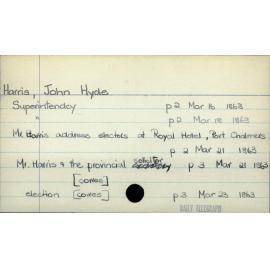 Harris, John Hyde
Superintendency p 2 Mar 16 1863
" p 2 Mar 18 1863
Mr Harris address electors at Royal Hotel, Port Chalmers
p 2 Mar 21 1863
Mr. Harris & the provincial solicitor p 3 Mar 21 1863
[corres]
election [corres] p 3 Mar 23 1863
DAILY TELEGRAPH